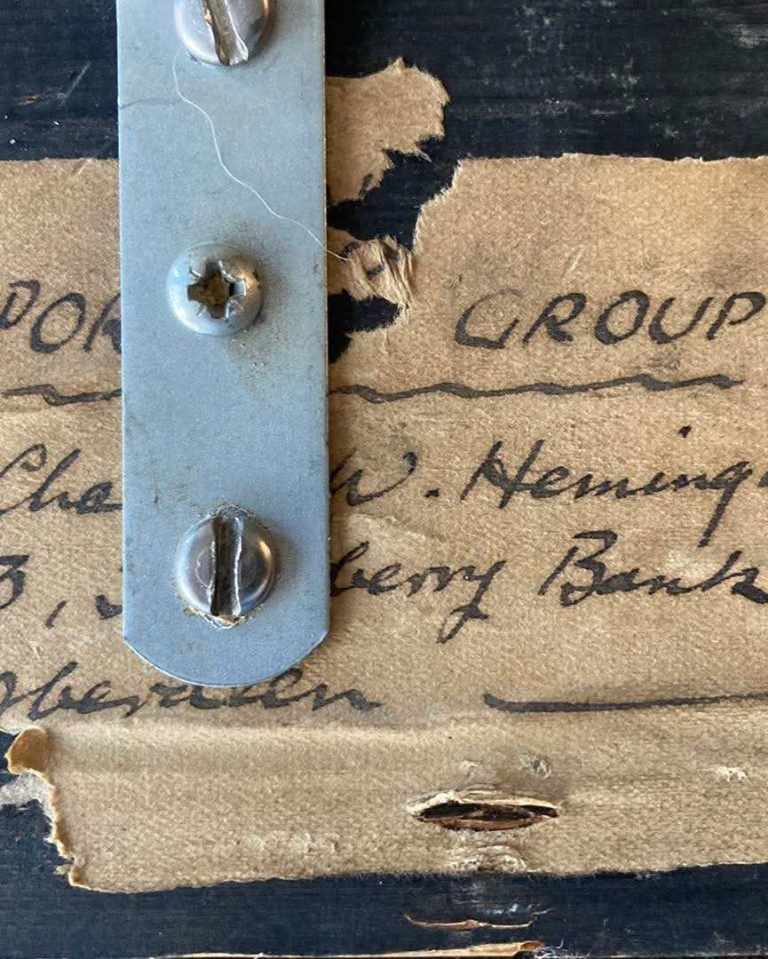 POR GROUP
Cha W. Heming
3, berry Bank
Aberdeen